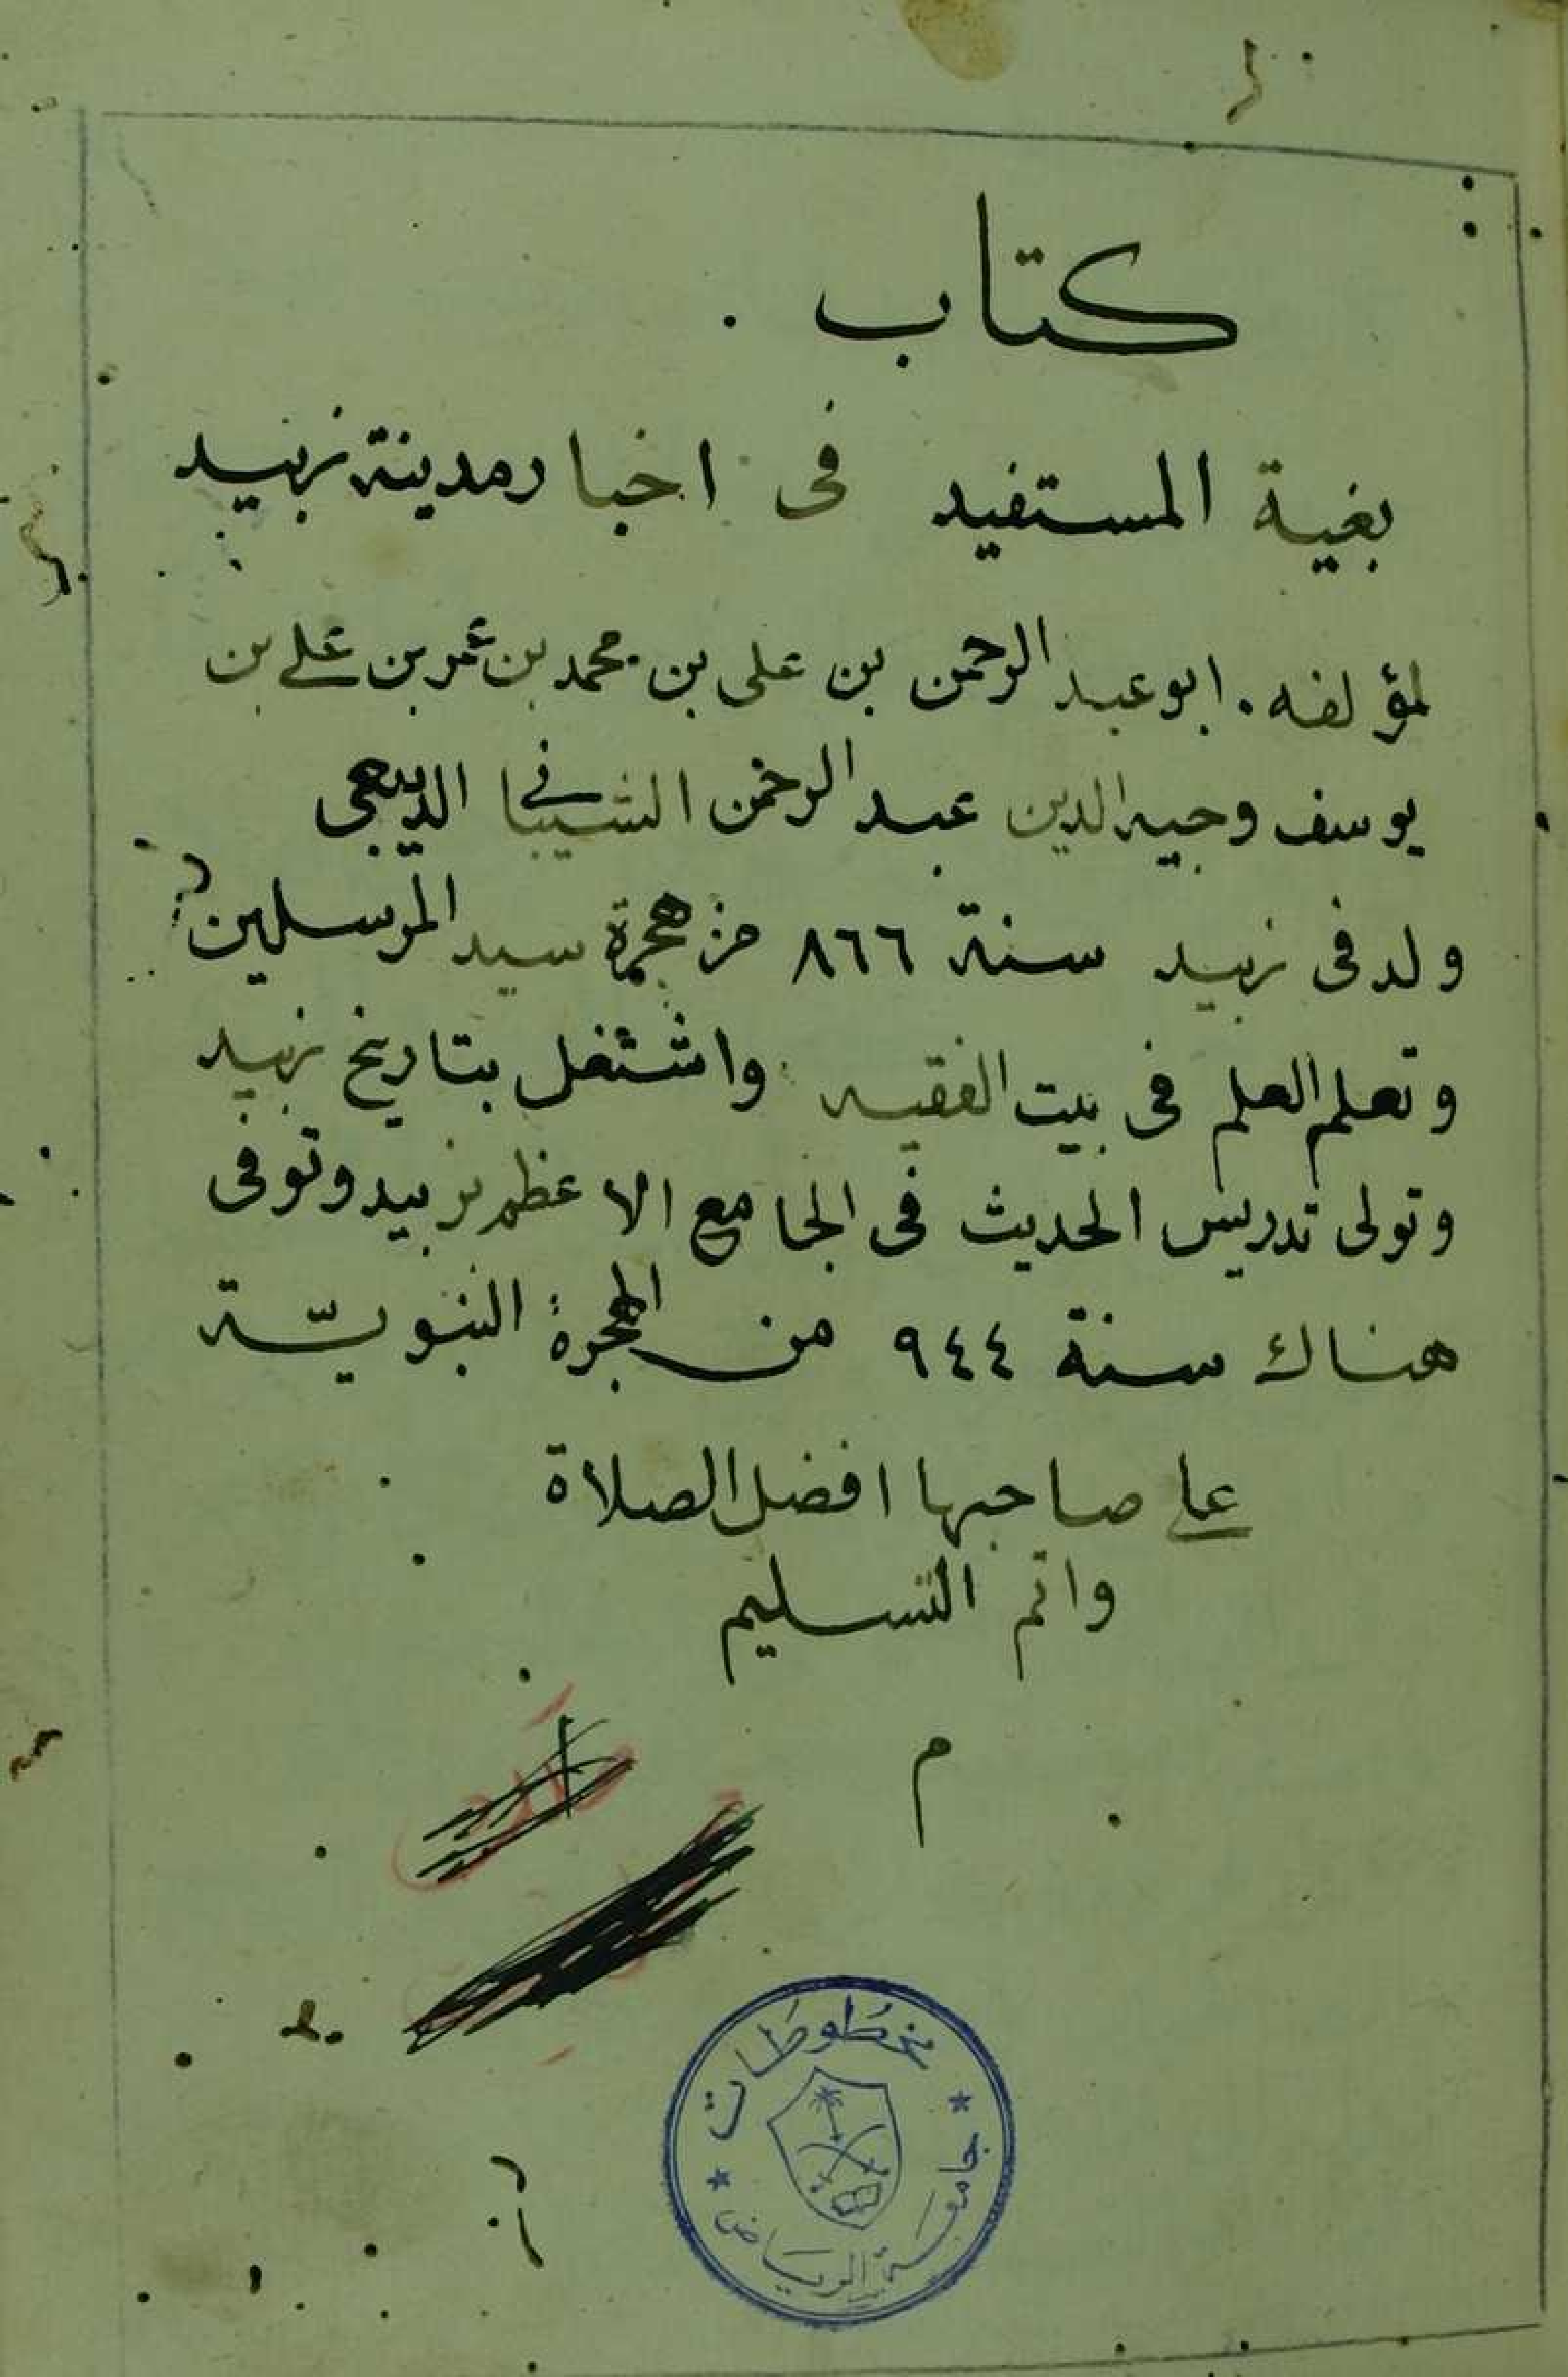 كتاب
بغية المستفيد فى اخبار مدينة زبيد
لمؤلفه . ابو عبد الرحمن بن على بن محمد بن عمر بن على بن
يوسف وجيه الدين عبد الرحمن الشيبانى الديبعى
ولد فى زبيد سنة ٨٦٦ من هجرة سيد المرسلين
وتعلم العلم فى بيت الفقيه واشتغل بتاريخ زبيد
وتولى تدريس الحديث فى الجامع الاعظم بزبيد وتوفى
هناك سنة ٩٤٤ من الهجرة النبويّة
على صاحبها افضل الصلاة
واتم التسليم
م
مخطوطات
جامعة الرياض